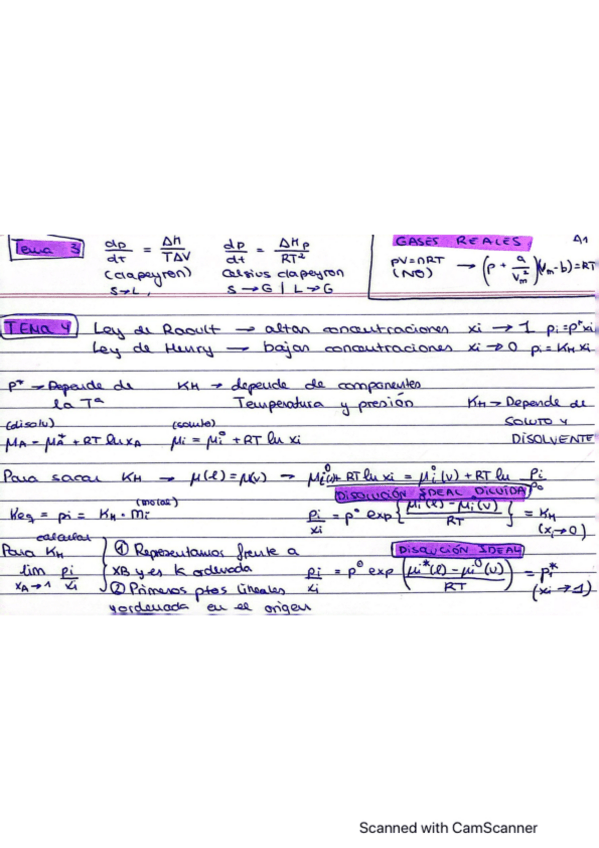 Tema 3
dp/dt = ΔH/TΔV
(Clapeyron)
S→L,
dp/dt = ΔH p/RT²
Celsius clapeyron
S → G | L → G
GASES REALES
A1
pV=nRT → (p + a/Vm²)(Vm-b)=RT
(NO)
TEMA 4 Ley de Raoult → altas concentraciones xi → 1 pi=p*xi
Ley de Henry → bajas concentraciones xi → 0 pi=KH xi
P* → Depende de la Tª
KH → depende de componentes
Temperatura y presión
KH → Depende de
SOLUTO Y
DISOLVENTE
(disolv)
μA = μA* + RT ln xA
(soluto)
μi = μi° + RT ln xi
Para sacar KH → μ(l) = μ(v) → μi°(l) + RT ln xi = μi°(v) + RT ln Pi/P0
DISOLUCIÓN IDEAL DILUIDA
(molal)
Keq = pi = KH · mi
pi/xi = p° exp{μi(l) - μi(v)/RT} = KH
(xi → 0)
calcular
Para KH
lim pi/xi
xA→1
① Representamos frente a
XB y es k ordenada
② Primeros ptos lineales
y ordenada en el origen
DISOLUCIÓN IDEAL
pi/xi = p° exp(μi*(l) - μi°(v)/RT) = Pi*
(xi → 1)
Scanned with CamScanner